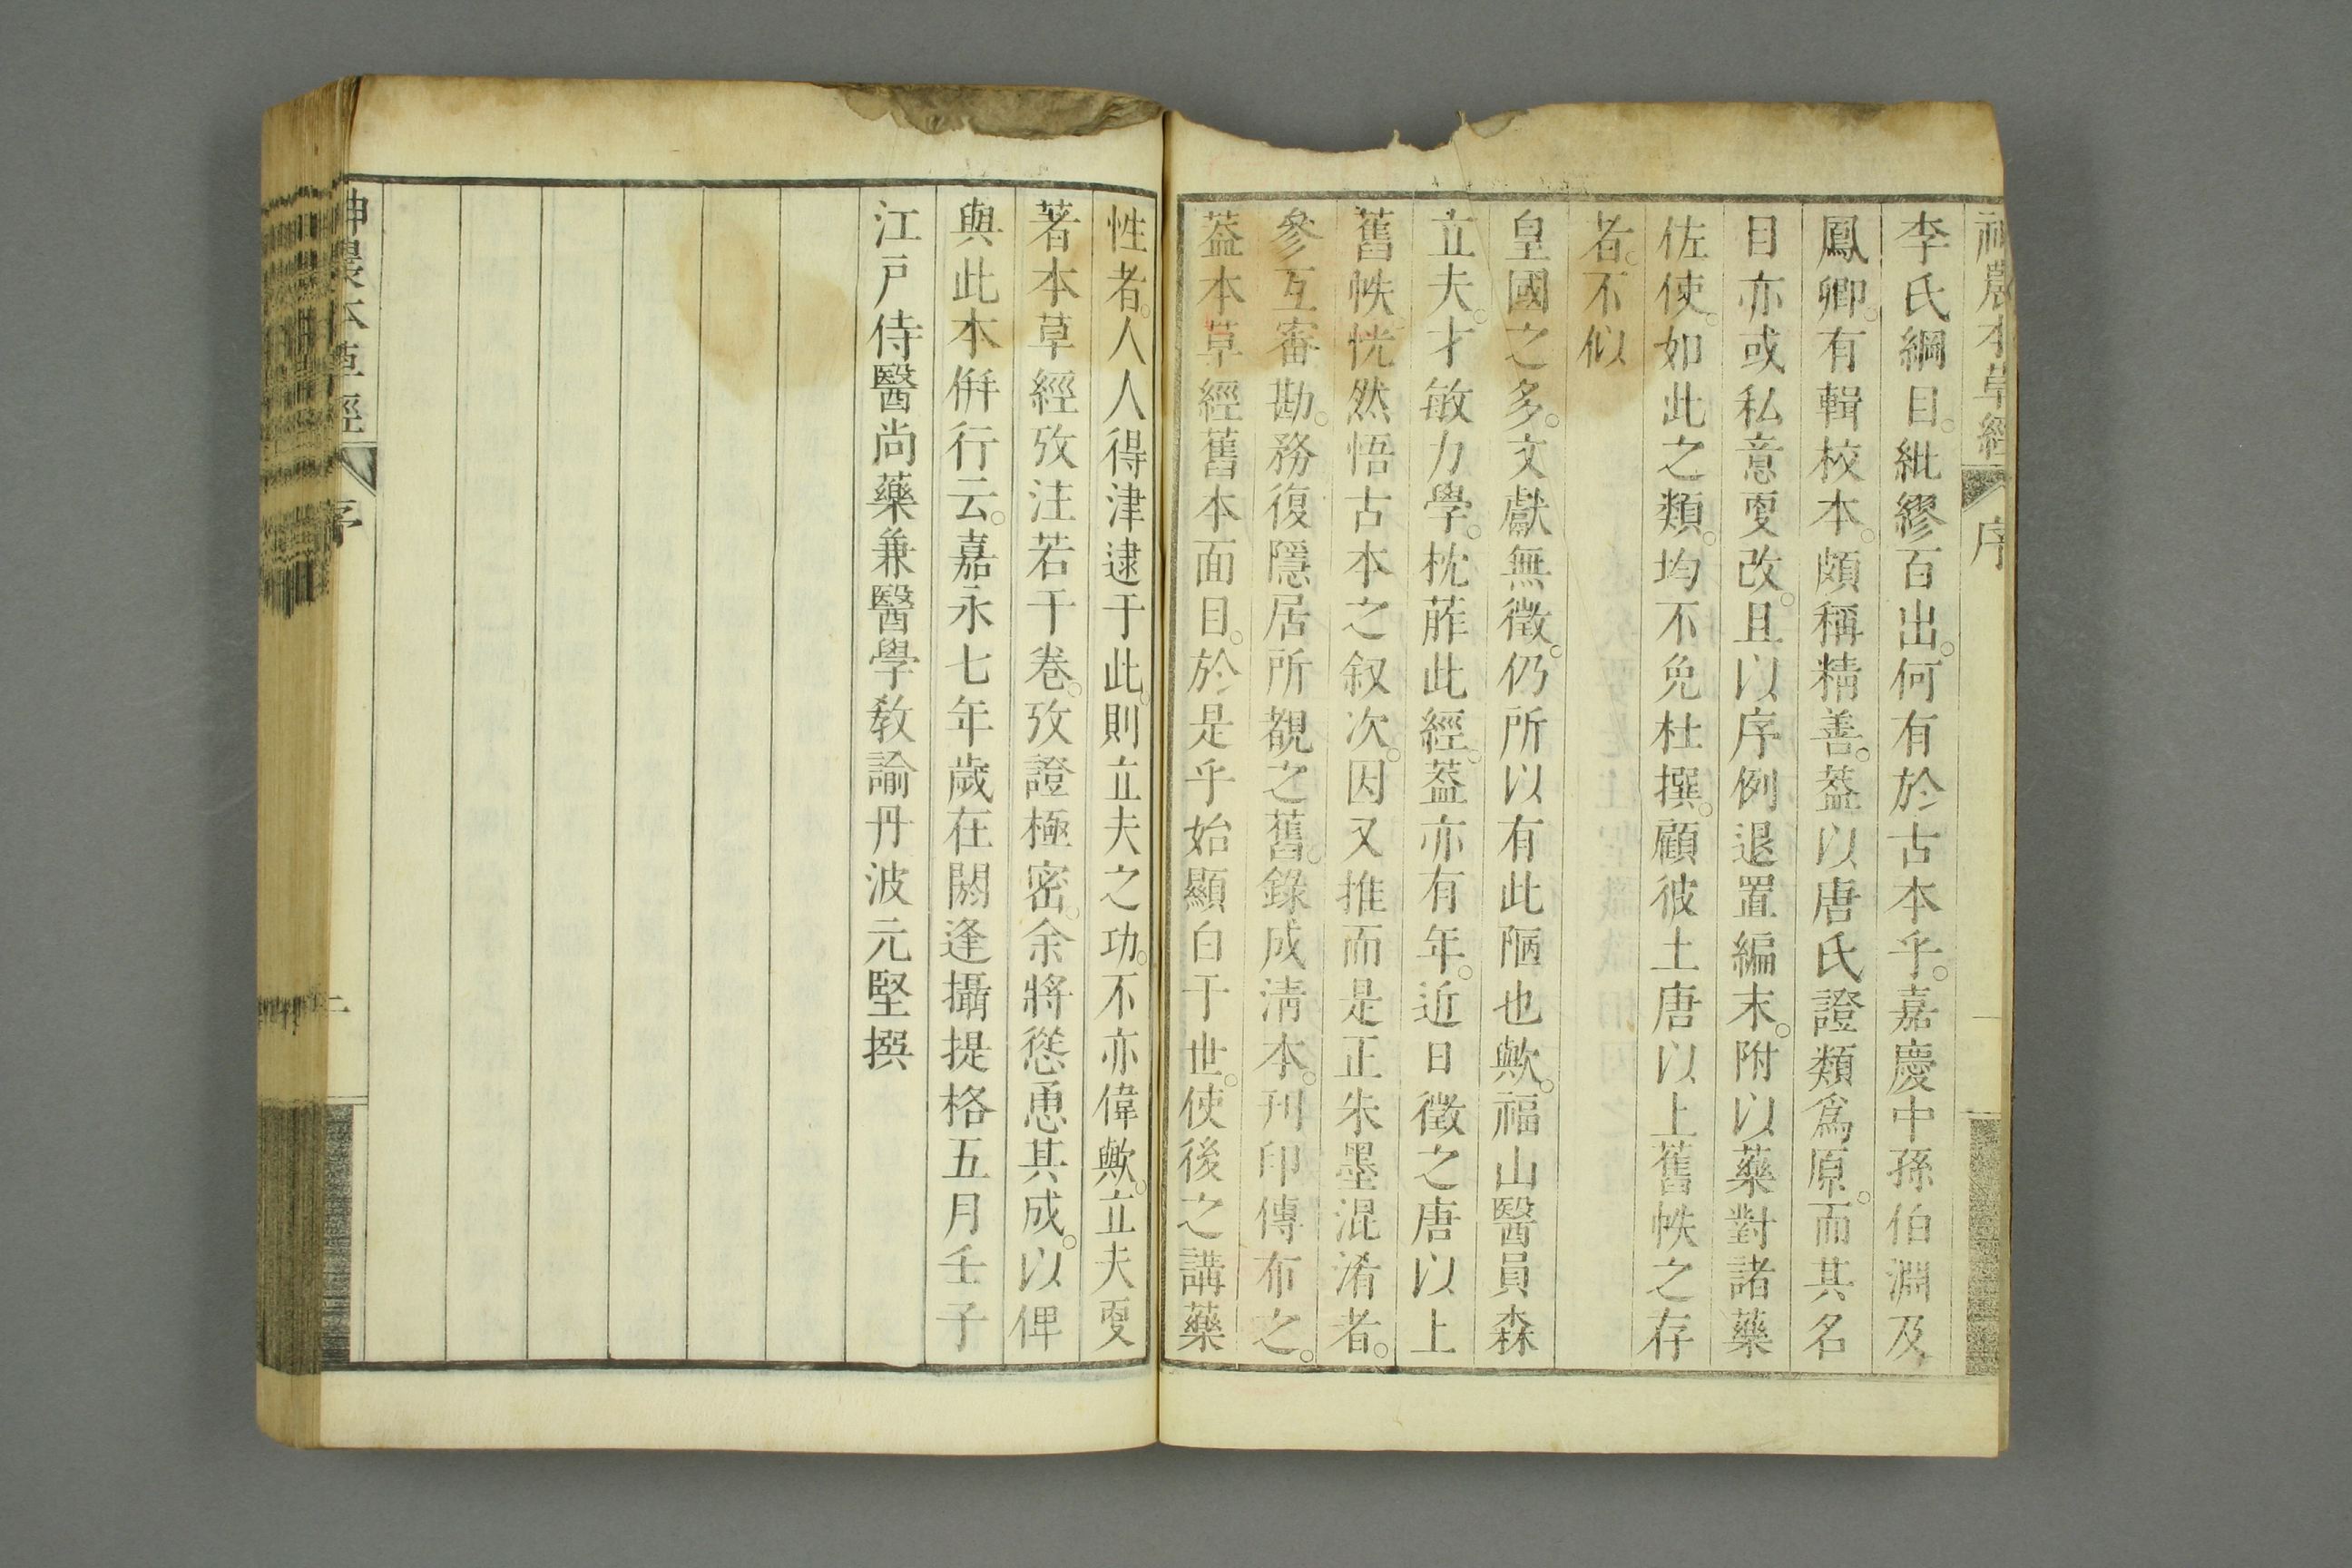 神農本草經 序 一
李氏綱目。紕繆百出。何有於古本乎。嘉慶中孫伯淵及
鳳卿。有輯校本。頗稱精善。葢以唐氏證類爲原。而其名
目亦或私意㪅改。且以序例退置編末。附以藥對諸藥
佐使。如此之類。均不免杜撰。顧彼土唐以上舊帙之存
者。不似
皇國之多。文獻無徵。仍所以有此陋也歟。福山醫員森
立夫。才敏力學。枕葄此經。葢亦有年。近日徵之唐以上
舊帙。恍然悟古本之叙次。因又推而是正朱墨混淆者。
參互審勘。務復隱居所覩之舊。錄成淸本。刊印傳布之。
葢本草經舊本面目。於是乎始顯白于世。使後之講藥
性者。人人得津逮于此。則立夫之功。不亦偉歟。立夫㪅
著本草經攷注若干卷。攷證極密。余將慫恿其成。以俾
與此本倂行云。嘉永七年歲在閼逢攝提格五月壬子
江戶侍醫尚藥兼醫學敎諭丹波元堅撰
神農本草經 序 二